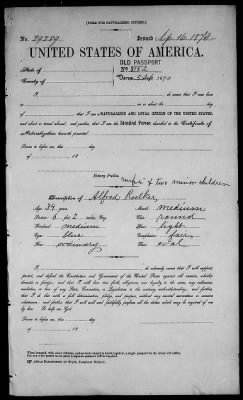 [FORM FOR NATURALIZED CITIZEN.]
No. 29259 Issued Sep. 16. 1872
UNITED STATES OF AMERICA.
OLD PASSPORT
State of No. 8152
County of Dated 5 Sept 1870
I, do swear that I was born
in on or about the day
of that I am a NATURALIZED AND LOYAL CITIZEN OF THE UNITED STATES,
and about to travel abroad; and further, that I am the Identical Person described in the Certificate of
Naturalization herewith presented.
Sworn to before me, this day
of 18
Notary Public.
wife & two minor children
Description of Alfred
Age: 34 years Mouth: medium
Stature: 5 feet 2 inches, Eng. Chin: round
Forehead: medium Hair: light
Eyes: blue Complexion: fair
Nose: ordinary Face: oval
I, do solemnly swear that I will support,
protect, and defend the Constitution and Government of the United States against all enemies, whether
domestic or foreign; and that I will bear true faith, allegiance, and loyalty to the same, any ordinance,
resolution, or law of any State, Convention, or Legislature to the contrary notwithstanding; and further,
that I do this with a full determination, pledge, and purpose, without any mental reservation or evasion
whatsoever; and further, that I will well and faithfully perform all the duties which may be required of me by law.
Sworn to before me, this day
of 18